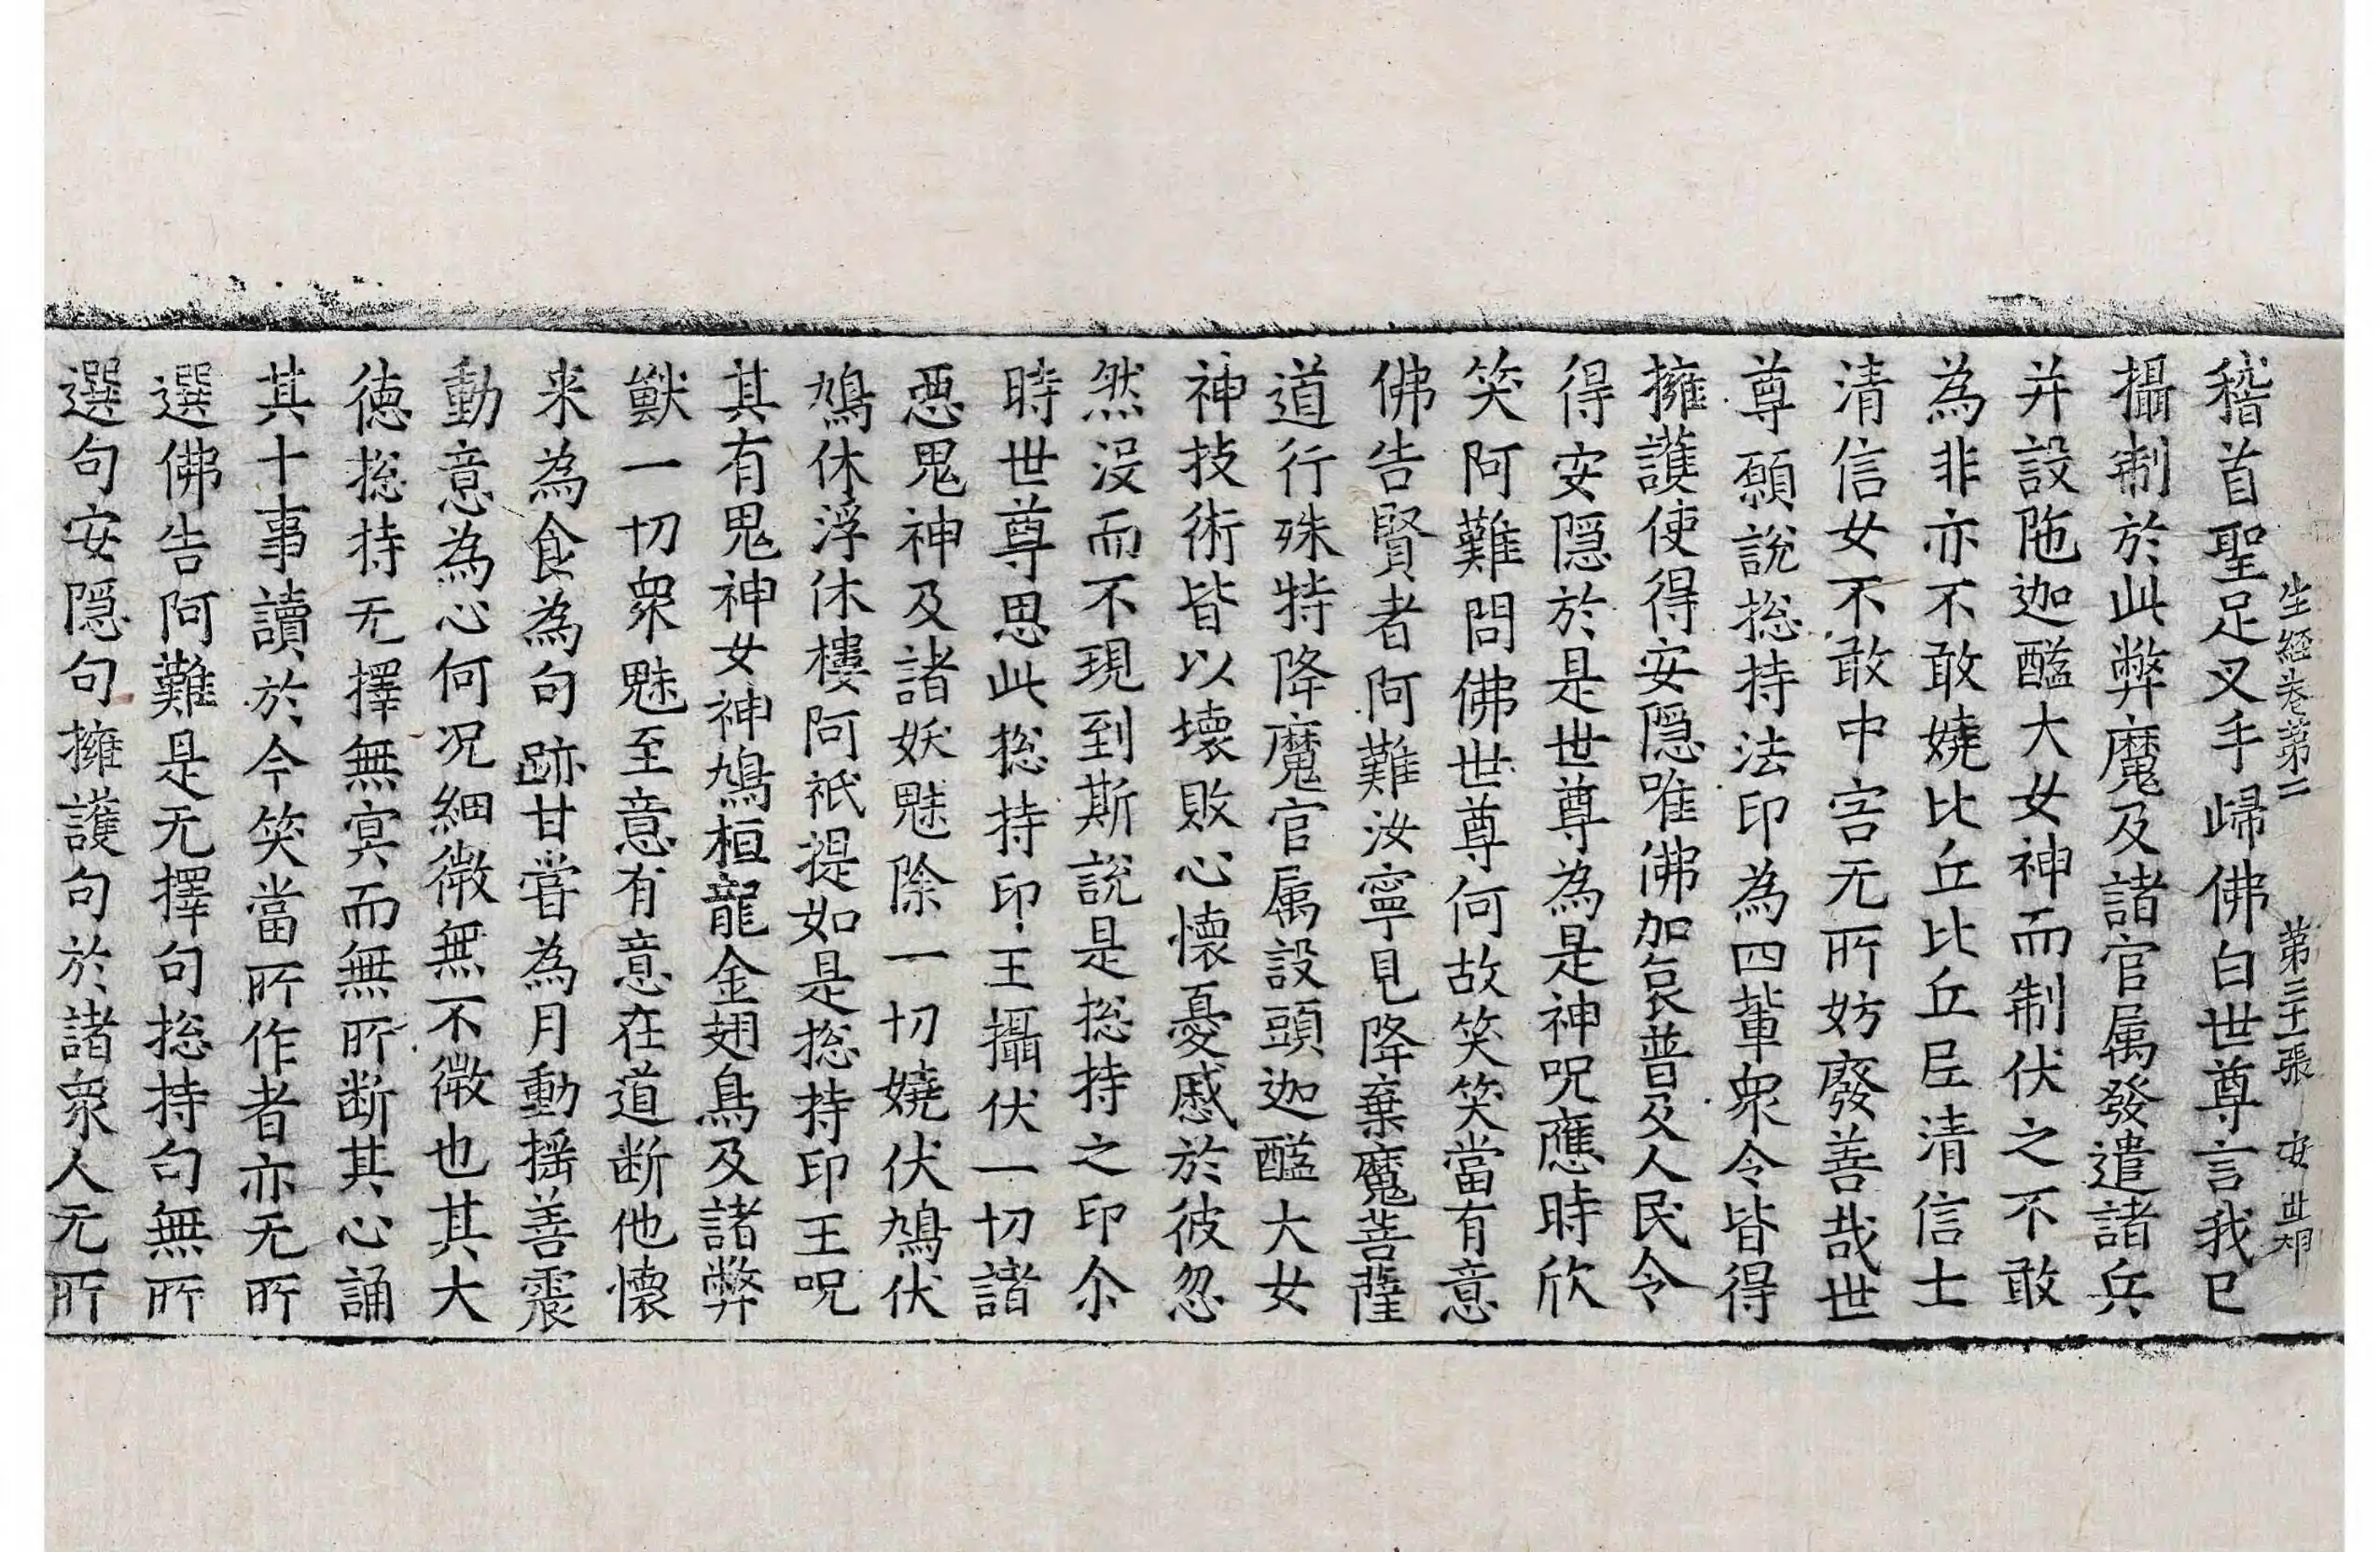 生經卷第二　第三十一張　安　世明
稽首聖足叉手歸佛白世尊言我已
攝制於此弊魔及諸官属發遣諸兵
并設陁迦醯大女神而制伏之不敢
為非亦不敢嬈比丘比丘尼清信士
清信女不敢中害无所妨廢善哉世
尊願說揔持法印為四輩衆令皆得
擁護使得安隠唯佛加哀普及人民令
得安隠於是世尊為是神呪應時欣
笑阿難問佛世尊何故笑笑當有意
佛告賢者阿難汝寧見降棄魔菩薩
道行殊特降魔官属設頭迦醯大女
神技術皆以壞敗心懷憂慼於彼忽
然沒而不現到斯說是揔持之印尒
時世尊思此揔持印王攝伏一切諸
惡鬼神及諸妖魅除一切嬈伏鳩伏
鳩休浮休樓阿袛禔如是揔持印王呪
其有鬼神女神鳩桓龍金翅鳥及諸弊
獸一切衆魅至意有意在道断他懷
来為食為句跡甘嘗為月動揺善震
動意為心何况細微無不微也其大
徳揔持无擇無㝠而無所断其心誦
其十事讀於今笑當所作者亦无所
選佛告阿難是无擇句揔持句無所
選句安隠句擁護句於諸衆人无所